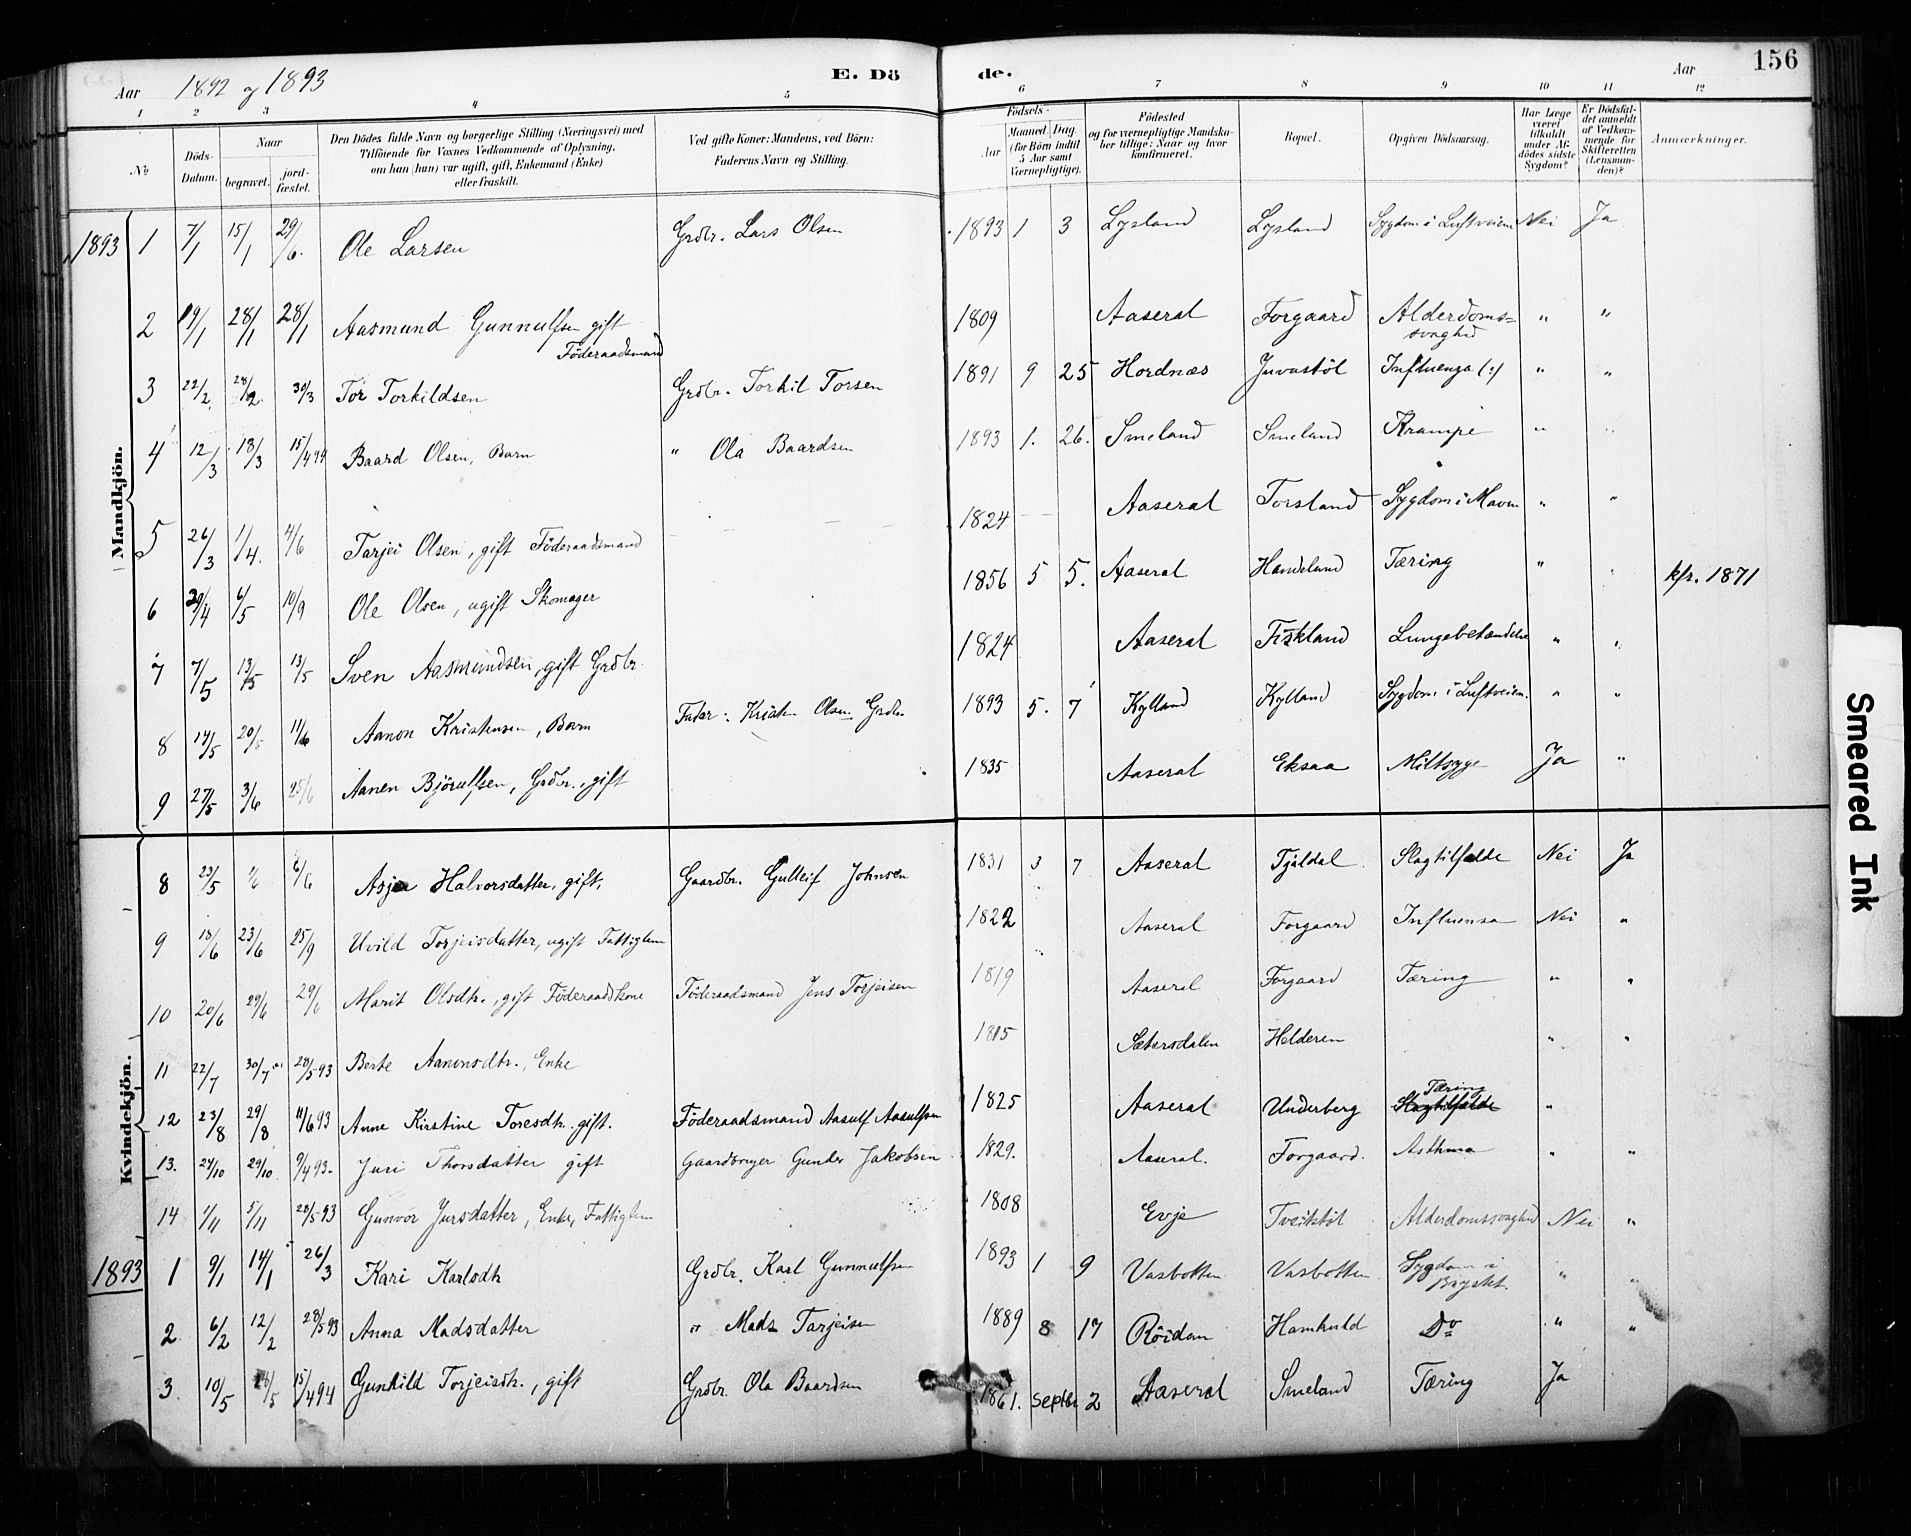 Aar 1892 og 1893 E. Dö de. Aar 156
1 2 3 4 5 6 7 8 9 10 11 12
No Döds-Datum. Naar begravet. jord-fæstet. Den Dödes fulde Navn og borgerlige Stilling (Næringsvei) med Tilföiende for Voxnes Vedkommende af Oplysning, om han (hun) var ugift, gift, Enkemand (Enke) eller fraskilt. Ved gifte Koner: Mandens, ved Börn: Faderens Navn og Stilling. Födsels- Aar Maaned Dag (for Börn indtil 5 Aar samt Værnepligtige). Födested og for værnepligtige Mandskaber tillige: Naar og hvor konfirmeret. Bopæl. Opgiven Dödsaarsag. Har Læge været tilkaldt under Afdödes sidste Sygdom? Er Dödsfaldet anmeldt af Vedkommende for Skifteretten (Lensmanden)? Anmærkninger.
Mandkjön.
1893 1 7/1 15/1 29/6. Ole Larsen Grdbr. Lars Olsen 1893 1 3 Lysland Lysland Sygdom i Luftveiene Nei Ja
2 19/1 28/1 28/1 Aasmund Gunnulfsen gift Föderaadsmand 1809 Aaseral Forgaard Alderdoms=svaghed " "
3 22/2. 28/2. 30/3 Tor Torkildsen Grdbr. Torkil Torsen 1891 9 25 Hordnæs Juvastöl Influenza (?) " "
4 12/3 18/3 15/4 94 Baard Olsen, Barn " Ola Baardsen 1893 1. 26. Smeland Smeland Krampe " "
5 26/3 1/4. 4/6 Tarjei Olsen, gift Föderaadsmand 1824 Aaseral Torsland Sygdom i Maven " "
6 29/4 6/5 10/9 Ole Olsen, ugift Skomager 1856 5 5. Aaseral Handeland Tæring " " kfr. 1871
7 7/5 13/5 13/5 Sven Aasmundsen, gift Grdbr. 1824 Aaseral Fiskland Lungebetændelse " "
8 14/5 20/5 11/6 Aanon Kristensen, Barn Fader: Kristen Olsen Grdbr. 1893 5. 7 Kylland Kylland Sygdom i Luftveiene. " "
9 27/5 3/6 25/6 Aanen Björulfsen, Grdbr., gift 1835 Aaseral Eksaa Miltsyge Ja "
Kvindekjön.
8 23/5 6/6 Asjer Halvorsdatter, gift, Gaardbr. Gulleif Johnsen 1831 3 7 Aaseral Tjaldal Slagtilfælde Nei Ja
9 18/6 23/6 25/9 Uvild Torjeisdatter, ugift Fattiglem 1822 Aaseral Forgaard Influensa Nei "
10 20/6 29/6 29/6 Marit Olsdtr., gift Föderaadskone Föderaadsmand Jens Torjeisen 1819 Aaseral Forgaard Tæring " "
11 22/7 30/7 28/5 93 Berte Aanonsdtr., Enke 1815 Sætersdalen Helderen " "
12 23/8 29/8 11/6 93 Anne Kirstine Toresdtr. gift. Föderaadsmand Aasulf Aasulfsen 1825 Aaseral Underberg Slagtilfælde Tæring "
13. 24/10 29/10 9/4 93. Juri Thorsdatter gift Gaardbruger Gunder Jakobsen 1829. Aaseral. Forgaard. Asthma " "
14 1/11 5/11 28/5 93 Gunvor Jursdatter, Enke, Fattiglem 1808 Evje Tveitstöl Alderdomssvaghed Nei "
1893 1 9/1 14/1 26/3 Kari Karlsdtr Grdbr. Karl Gunnulfsen 1893 1 9 Vasbotten Vasbotten Sygdom i Brystet. " "
2 6/2 12/2 28/5 93 Anna Madsdatter " Mads Tarjeisen 1889 8 17 Röidan Hamkold Do " "
3. 10/5 18/5 15/4 94 Gunhild Torjeisdtr., gift Grdbr. Ola Baardsen 1861. Septbr 2 Aaseral Smeland Tæring Ja
Smeared Ink